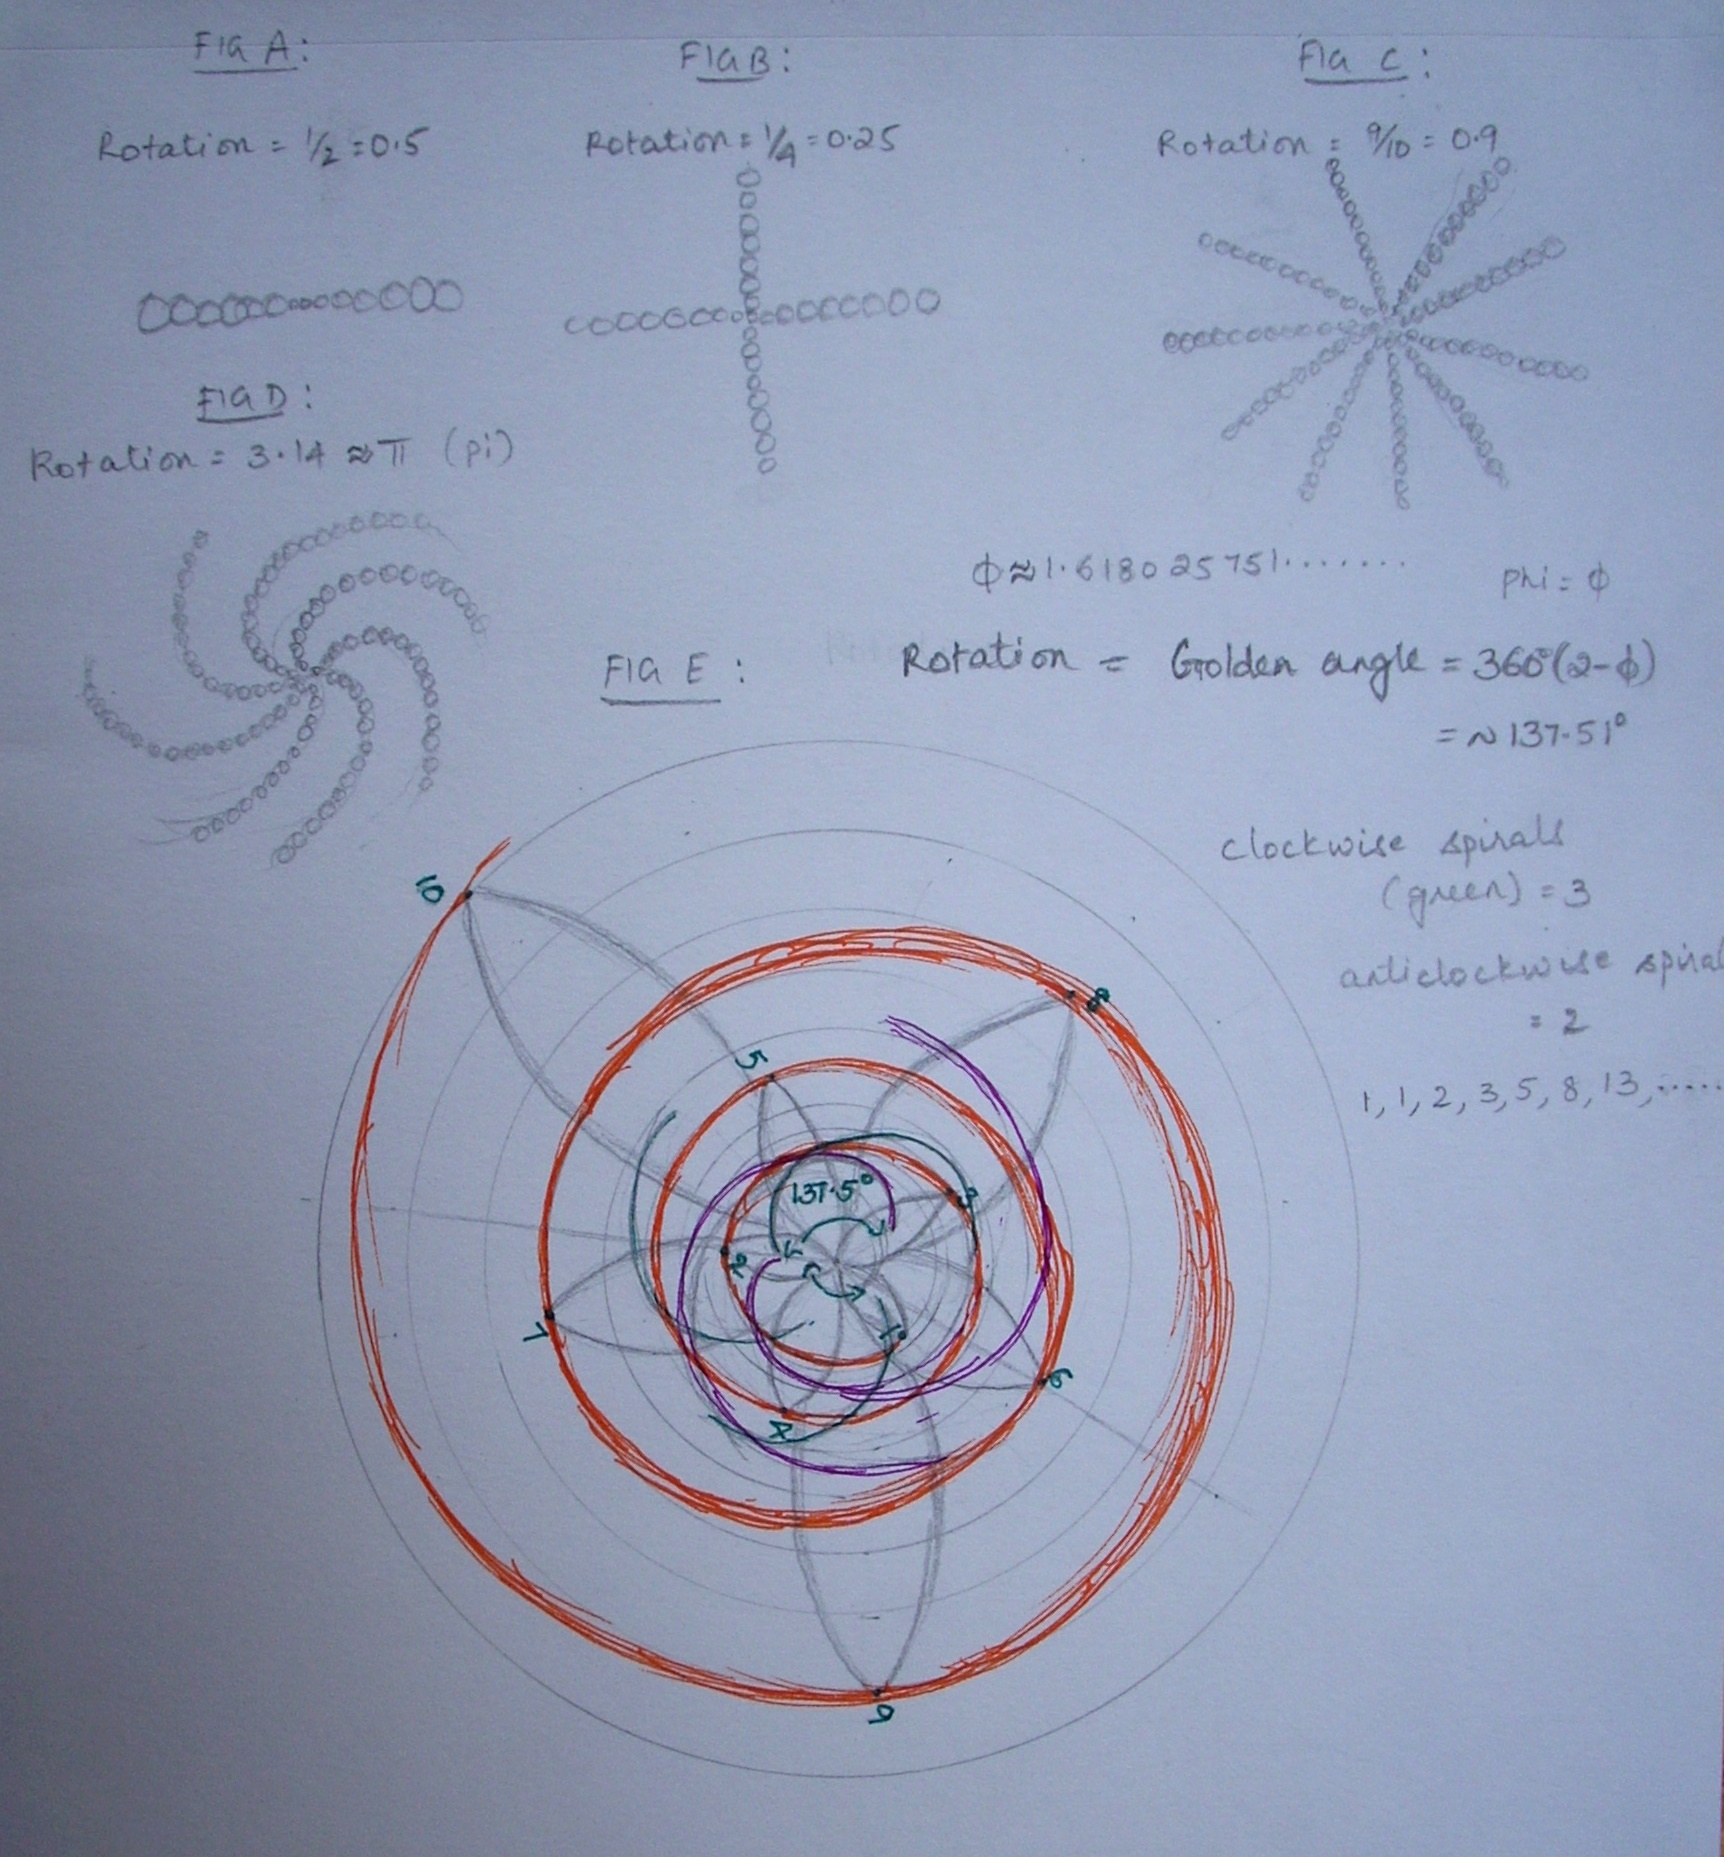 FIG A:
Rotation = 1/2 = 0.5
FIG B:
Rotation = 1/4 = 0.25
FIG C:
Rotation = 9/10 = 0.9
FIG D:
Rotation = 3.14 ≈ π (pi)
ϕ ≈ 1.618025751.......
Phi = ϕ
FIG E:
Rotation = Golden angle = 360°(2-ϕ)
= ~ 137.51°
clockwise spirals
(green) = 3
anticlockwise spiral
= 2
1, 1, 2, 3, 5, 8, 13, .....
10
8
5
137.5°
3
2
1
7
6
4
9